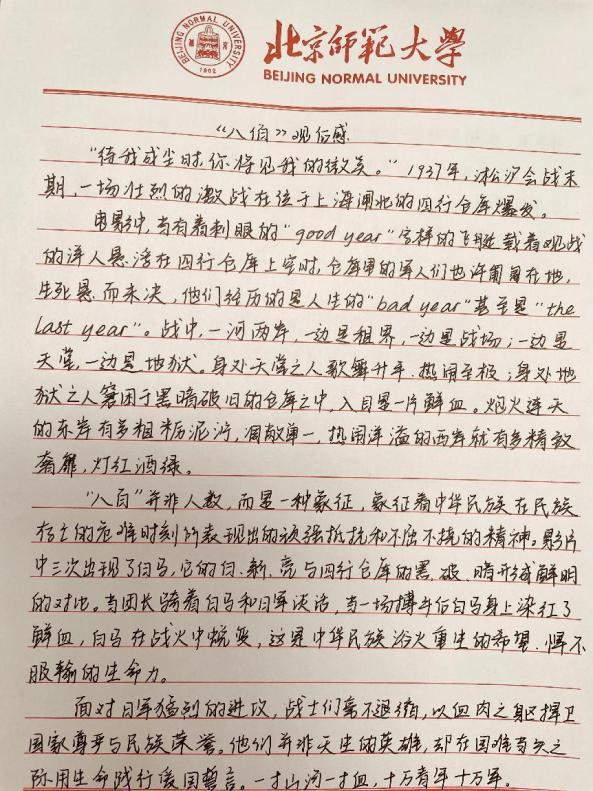 BEIJING NORMAL UNIVERSITY
1902
北京师范大学
BEIJING NORMAL UNIVERSITY
“八佰》观后感
“待我成尘时,你将见我的微笑。”1937年,淞沪会战末
期,一场壮烈的激战在位于上海闸北的四行仓库爆发。
电影中,当有着刺眼的“good year”字样的飞艇载着观战
的洋人悬浮在四行仓库上空时,仓库里的军人们也许匍匐在地,
生死悬而未决,他们经历的是人生的“bad year”甚至是“the
last year”。战中,一河两岸,一边是租界,一边是战场;一边是
天堂,一边是地狱。身处天堂之人歌舞升平、热闹至极;身处地
狱之人窘困于黑暗破旧的仓库之中,入目是一片鲜血。炮火连天
的东岸有多粗粝泥泞,凋敝单一,热闹洋溢的西岸就有多精致
奢靡,灯红酒绿。
“八百”并非人数,而是一种象征,象征着中华民族在民族
存亡的危难时刻所表现出的顽强抵抗和不屈不挠的精神。影片
中三次出现了白马,它的白、新、亮与四行仓库的黑、破、暗形成鲜明
的对比。当团长骑着白马和日军谈话,当一场搏斗后白马身上染红了
鲜血,白马在战火中蜕变,这是中华民族浴火重生的希望、悍不
服输的生命力。
面对日军猛烈的进攻,战士们毫不退缩,以血肉之躯捍卫
国家尊严与民族荣誉。他们并非天生的英雄,却在国难当头之
际用生命践行爱国誓言。一寸山河一寸血,十万青年十万军。